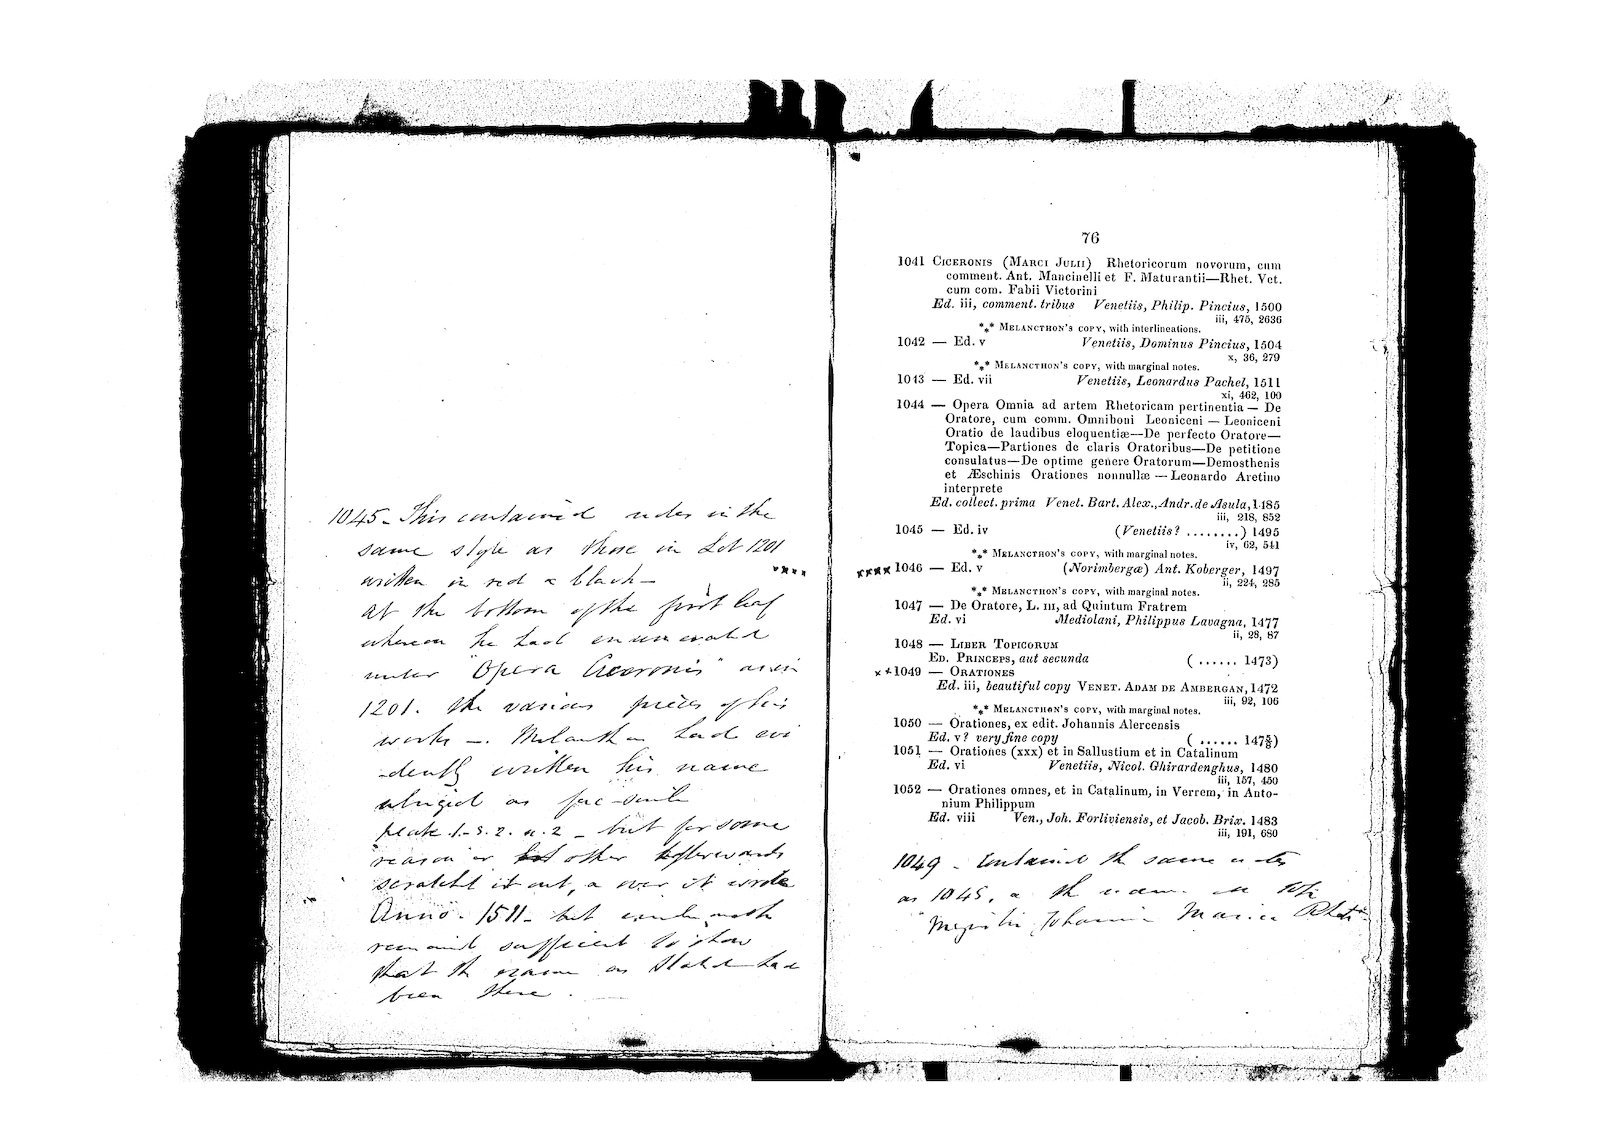 1045 - This contained notes in the
same style as those in Lot 1201
written in red & black -
at the bottom of the first leaf
whereon he had enumerated
under "Opera Ciceronis" as in
1201. the various pieces of his
works -. Melancthon had evi
-dently written his name
abridged as fac-simile
plate 1. - but for some
reason or other afterwards
scratched it out, & over it wrote
Anno. 1511 - but
remained sufficient to show
that the name as stated had
been there.
76
1041 CICERONIS (MARCI JULII) Rhetoricorum novorum, cum
comment. Ant. Mancinelli et F. Maturantii—Rhet. Vet.
cum com. Fabii Victorini
Ed. iii, comment. tribus Venetiis, Philip. Pincius, 1500
iii, 475, 2636
*⁎* MELANCTHON'S COPY, with interlineations.
1042 — Ed. v Venetiis, Dominus Pincius, 1504
x, 36, 279
*⁎* MELANCTHON'S COPY, with marginal notes.
1043 — Ed. vii Venetiis, Leonardus Pachel, 1511
xi, 462, 100
1044 — Opera Omnia ad artem Rhetoricam pertinentia — De
Oratore, cum comm. Omniboni Leoniceni — Leoniceni
Oratio de laudibus eloquentiæ—De perfecto Oratore—
Topica—Partiones de claris Oratoribus—De petitione
consulatus—De optime genere Oratorum—Demosthenis
et Æschinis Orationes nonnullæ — Leonardo Aretino
interprete
Ed. collect. prima Venet. Bart. Alex., Andr. de Asula, 1485
iii, 218, 852
1045 — Ed. iv (Venetiis? ........) 1495
iv, 62, 541
*⁎* MELANCTHON'S COPY, with marginal notes.
xxxx 1046 — Ed. v (Norimbergæ) Ant. Koberger, 1497
ii, 224, 285
*⁎* MELANCTHON'S COPY, with marginal notes.
1047 — De Oratore, L. III, ad Quintum Fratrem
Ed. vi Mediolani, Philippus Lavagna, 1477
ii, 28, 87
1048 — LIBER TOPICORUM
ED. PRINCEPS, aut secunda ( ...... 1473)
x x 1049 — ORATIONES
Ed. iii, beautiful copy VENET. ADAM DE AMBERGAN, 1472
iii, 92, 106
*⁎* MELANCTHON'S COPY, with marginal notes.
1050 — Orationes, ex edit. Johannis Alercensis
Ed. v? very fine copy ( ...... 147⅝)
1051 — Orationes (xxx) et in Sallustium et in Catalinum
Ed. vi Venetiis, Nicol. Ghirardenghus, 1480
iii, 157, 450
1052 — Orationes omnes, et in Catalinum, in Verrem, in Anto-
nium Philippum
Ed. viii Ven., Joh. Forliviensis, et Jacob. Brix. 1483
iii, 191, 680
1049 - Contained the same notes
as 1045, & the name on title
"Magistri Johannis Maria